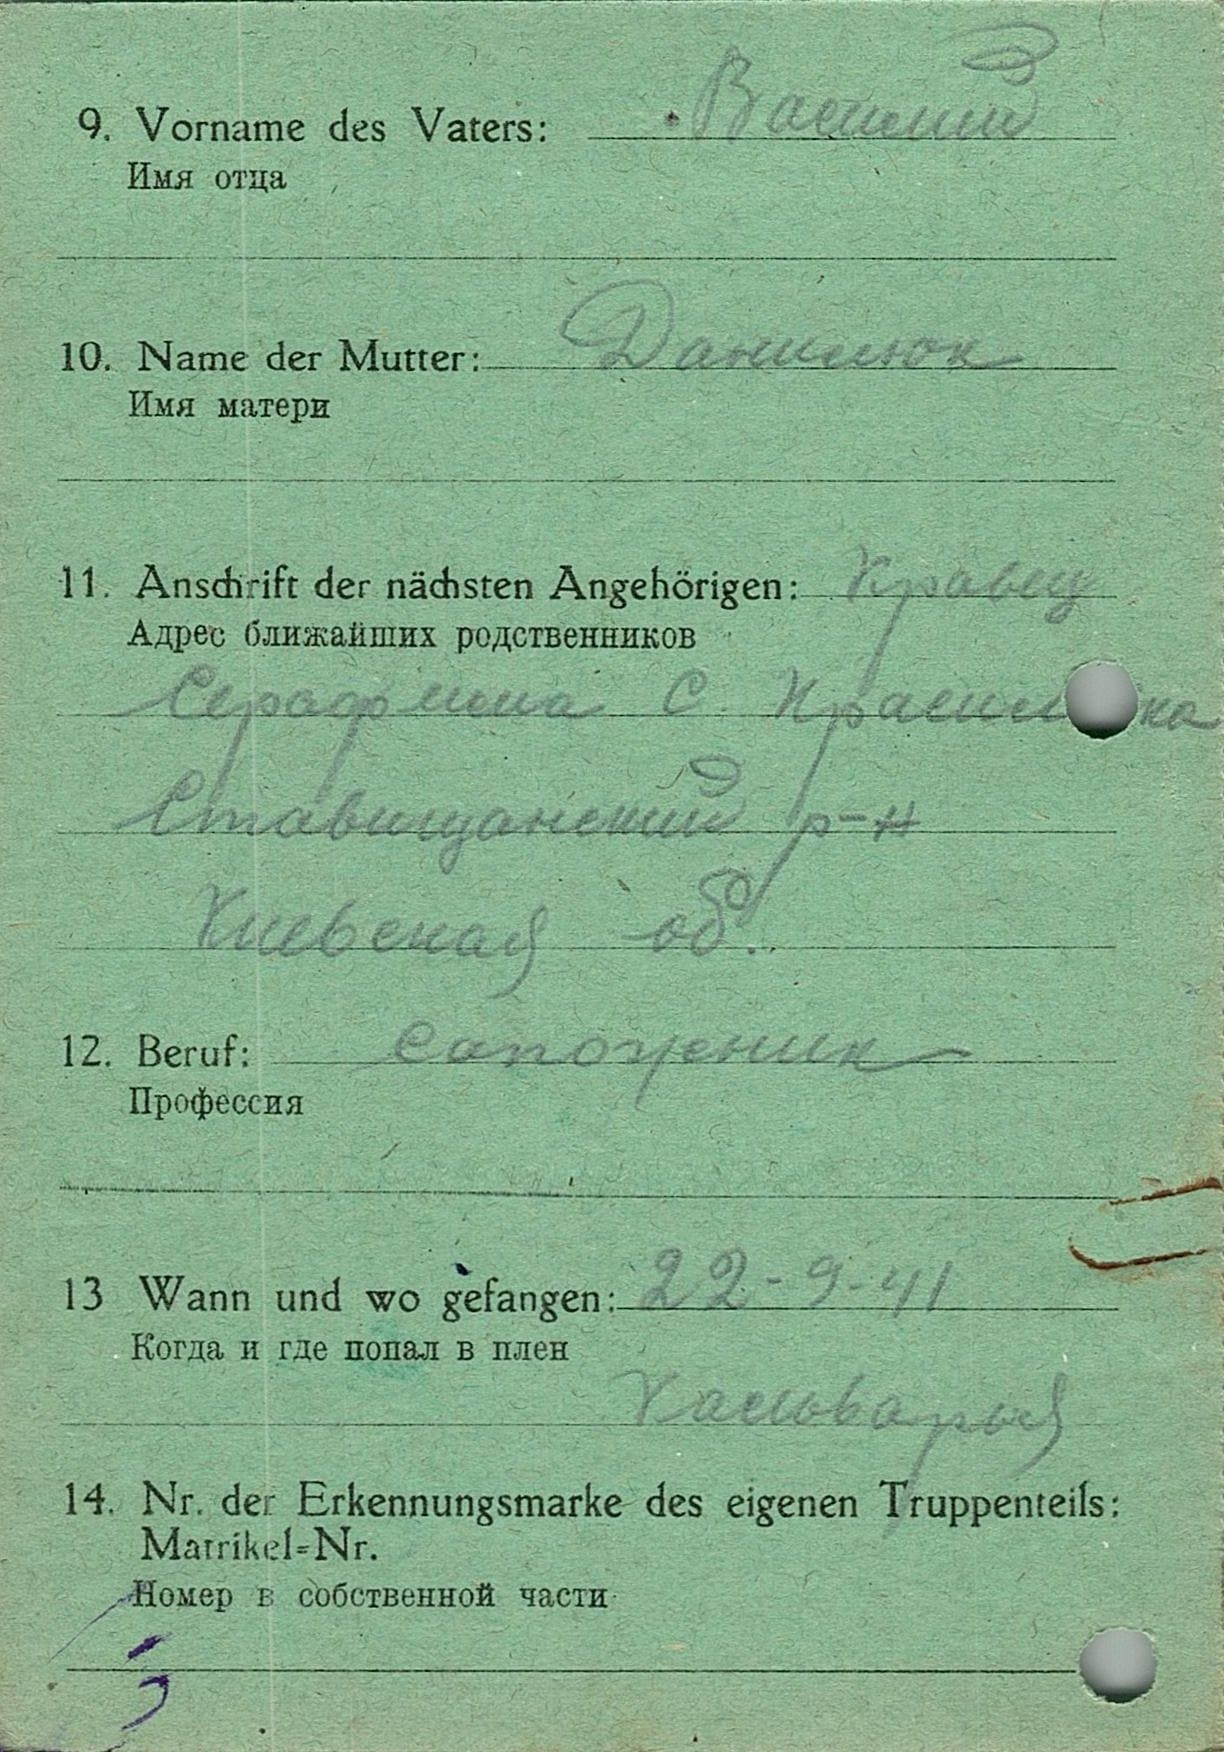 9. Vorname des Vaters: Василий
Имя отца
10. Name der Mutter: Данилюк
Имя матери
11. Anschrift der nächsten Angehörigen: Кравец
Адрес ближайших родственников
Серафима С.
Ставищанский р-н
Киевская об.
12. Beruf: сапожник
Профессия
13 Wann und wo gefangen: 22-9-41
Когда и где попал в плен
Кальварья
14. Nr. der Erkennungsmarke des eigenen Truppenteils:
Matrikel=Nr.
Номер в собственной части